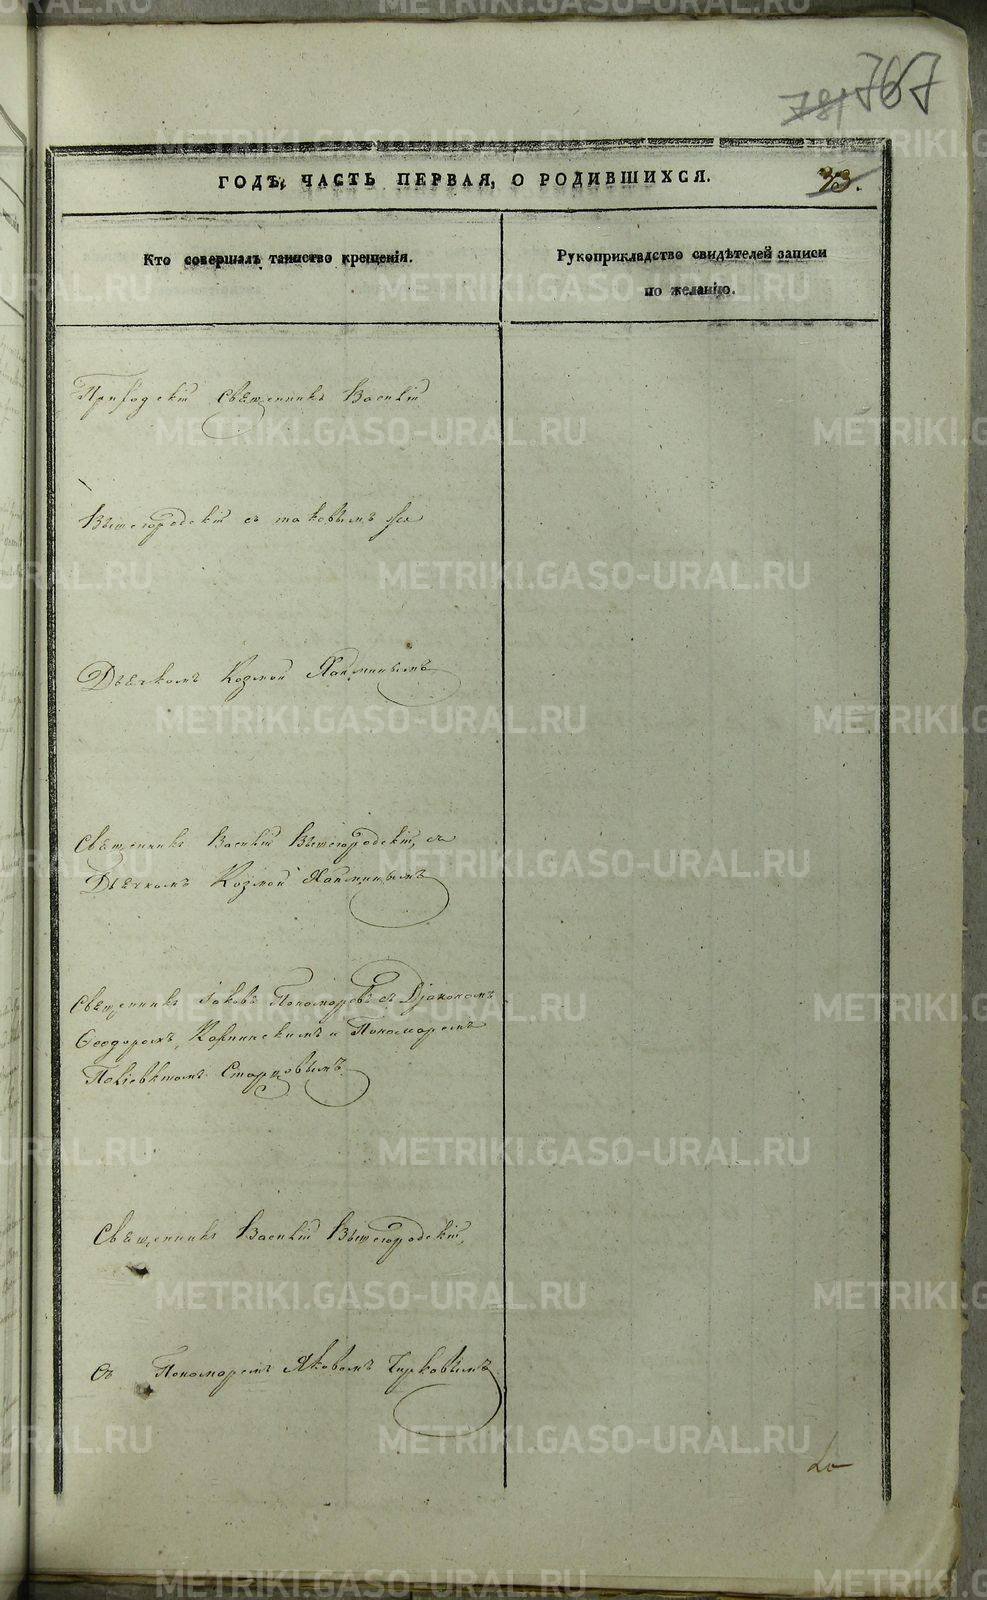 781 767
ГОДЪ, ЧАСТЬ ПЕРВАЯ, О РОДИВШИХСЯ.
33.
Кто совершалъ таинство крещенія.
Рукоприкладство свидѣтелей записи
по желанію.
Приходскій Священникъ Василій
Вышегородскій съ таковымъ же
Дьячкомъ Козмой
Священникъ Василій Вышегородскій, съ
Дьячкомъ Козмой
Священникъ Іаковъ Пономаревъ съ Діакономъ
Ѳеодоромъ Карпинскимъ и Пономаремъ
Поліевктомъ Старцовымъ.
Священникъ Василій Вышегородскій,
съ Пономаремъ Яковомъ Чирковымъ
METRIKI.GASO-URAL.RU